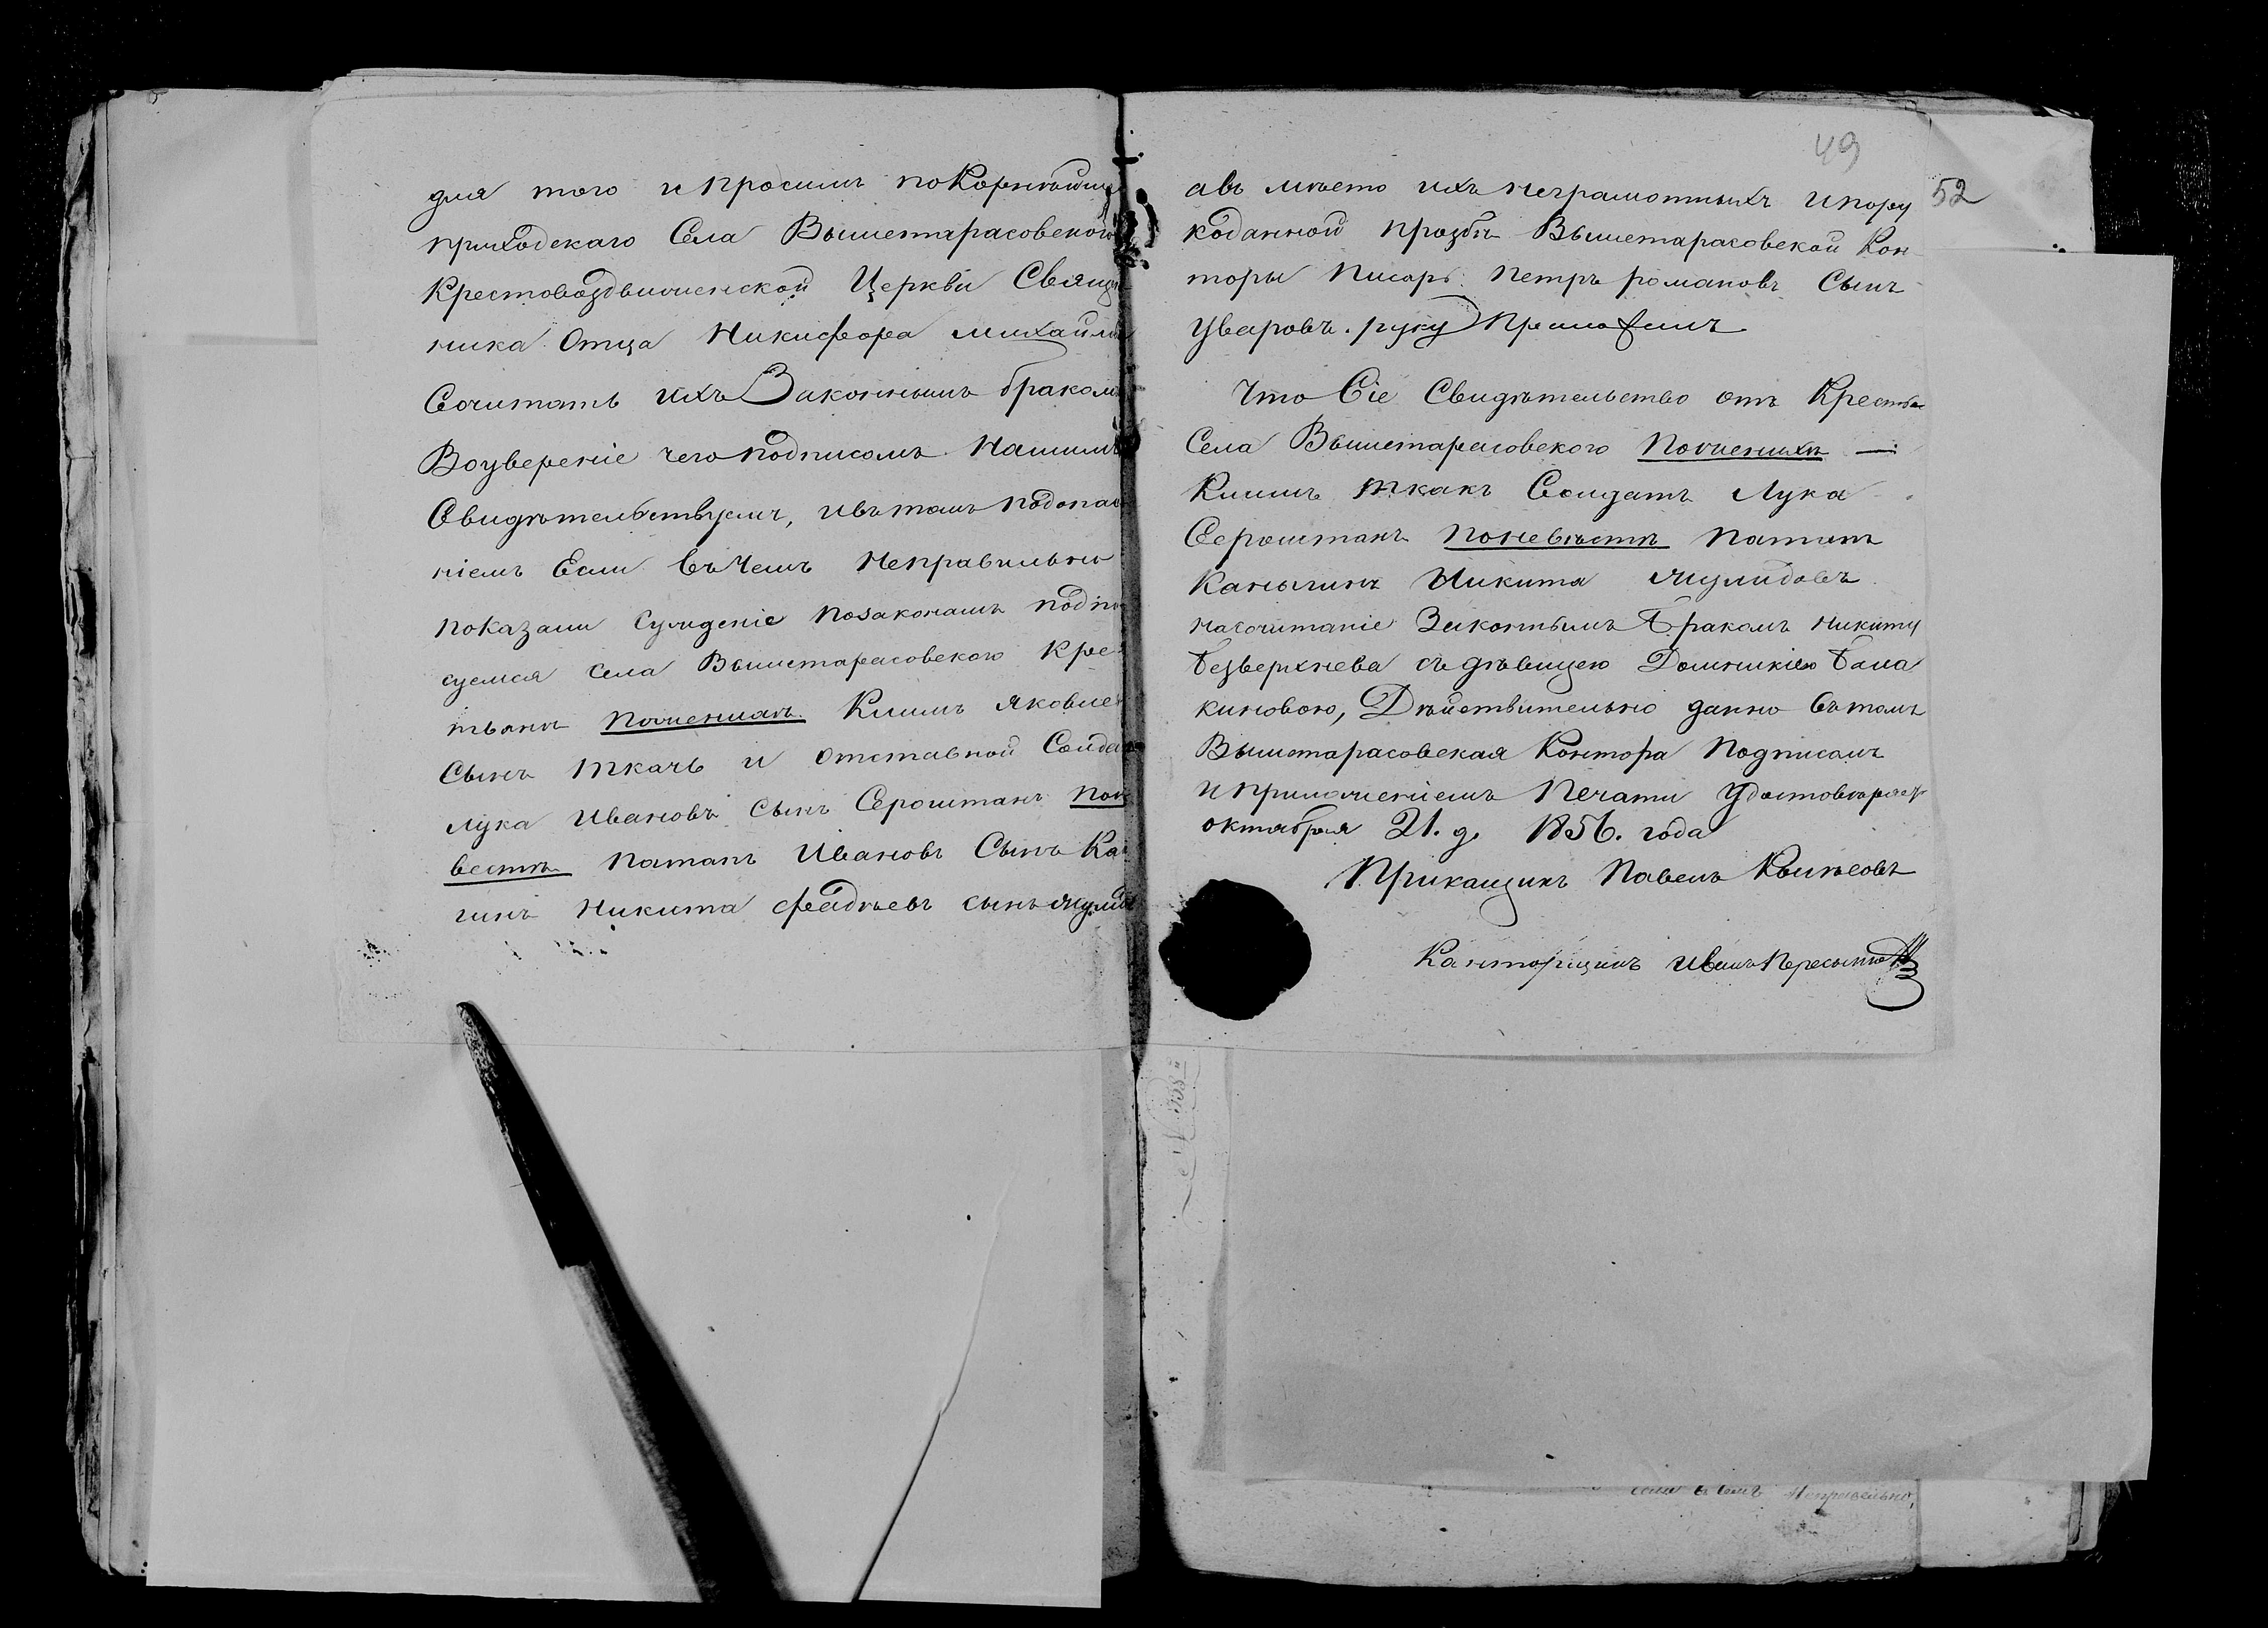 для того и просимъ покорнѣйше
приходскаго Села Вышетарасовского
Крестовоздвиженской Церкви Свящ
ника Отца Никифора Михайло
Сочитать ихъ Законнымъ бракомъ
Воуверение чего подписомъ Нашимъ
Свидѣтельствуемъ, ивътомъ подопа
ніемъ Если въ Чемъ Неправильно
показали Сужденіе позаконамъ подпи
суемся Села Вышетарасовского Кре
тьяне поженихѣ Климъ Яковлев
Сынъ ткачь и отставной Солда
Лука Ивановъ Сынъ Сероштанъ поне
вестѣ Потапъ Ивановъ Сынъ Ка
гинъ Никита Фадѣевъ сынъ
49
52
авъ мѣсто ихъ неграмотныхъ ипору
коданной прозбѣ Вышетарасовской Кон
торы Писарь Петръ романовъ Сынъ
Уваровъ. руку Приложилъ
Что Сіе Свидѣтельство отъ Кресть
Села Вышетарасовского поженихѣ —
Климъ Ткачь Солдатъ Лука
Сероштанъ поневѣстѣ Потапъ
Каныгинъ Никита
насочитаніе Законнымъ Бракомъ Никиту
Безверхнева съ дѣвицею Домникіею Бала
киновою, Дѣйствительно данно Вътомъ
Вышетарасовская Контора Подписомъ
и приложеніемъ Печати Удостовѣряетъ
октября 21. д. 1856. года
Прикащикъ Павелъ
Канторщикъ Иванъ